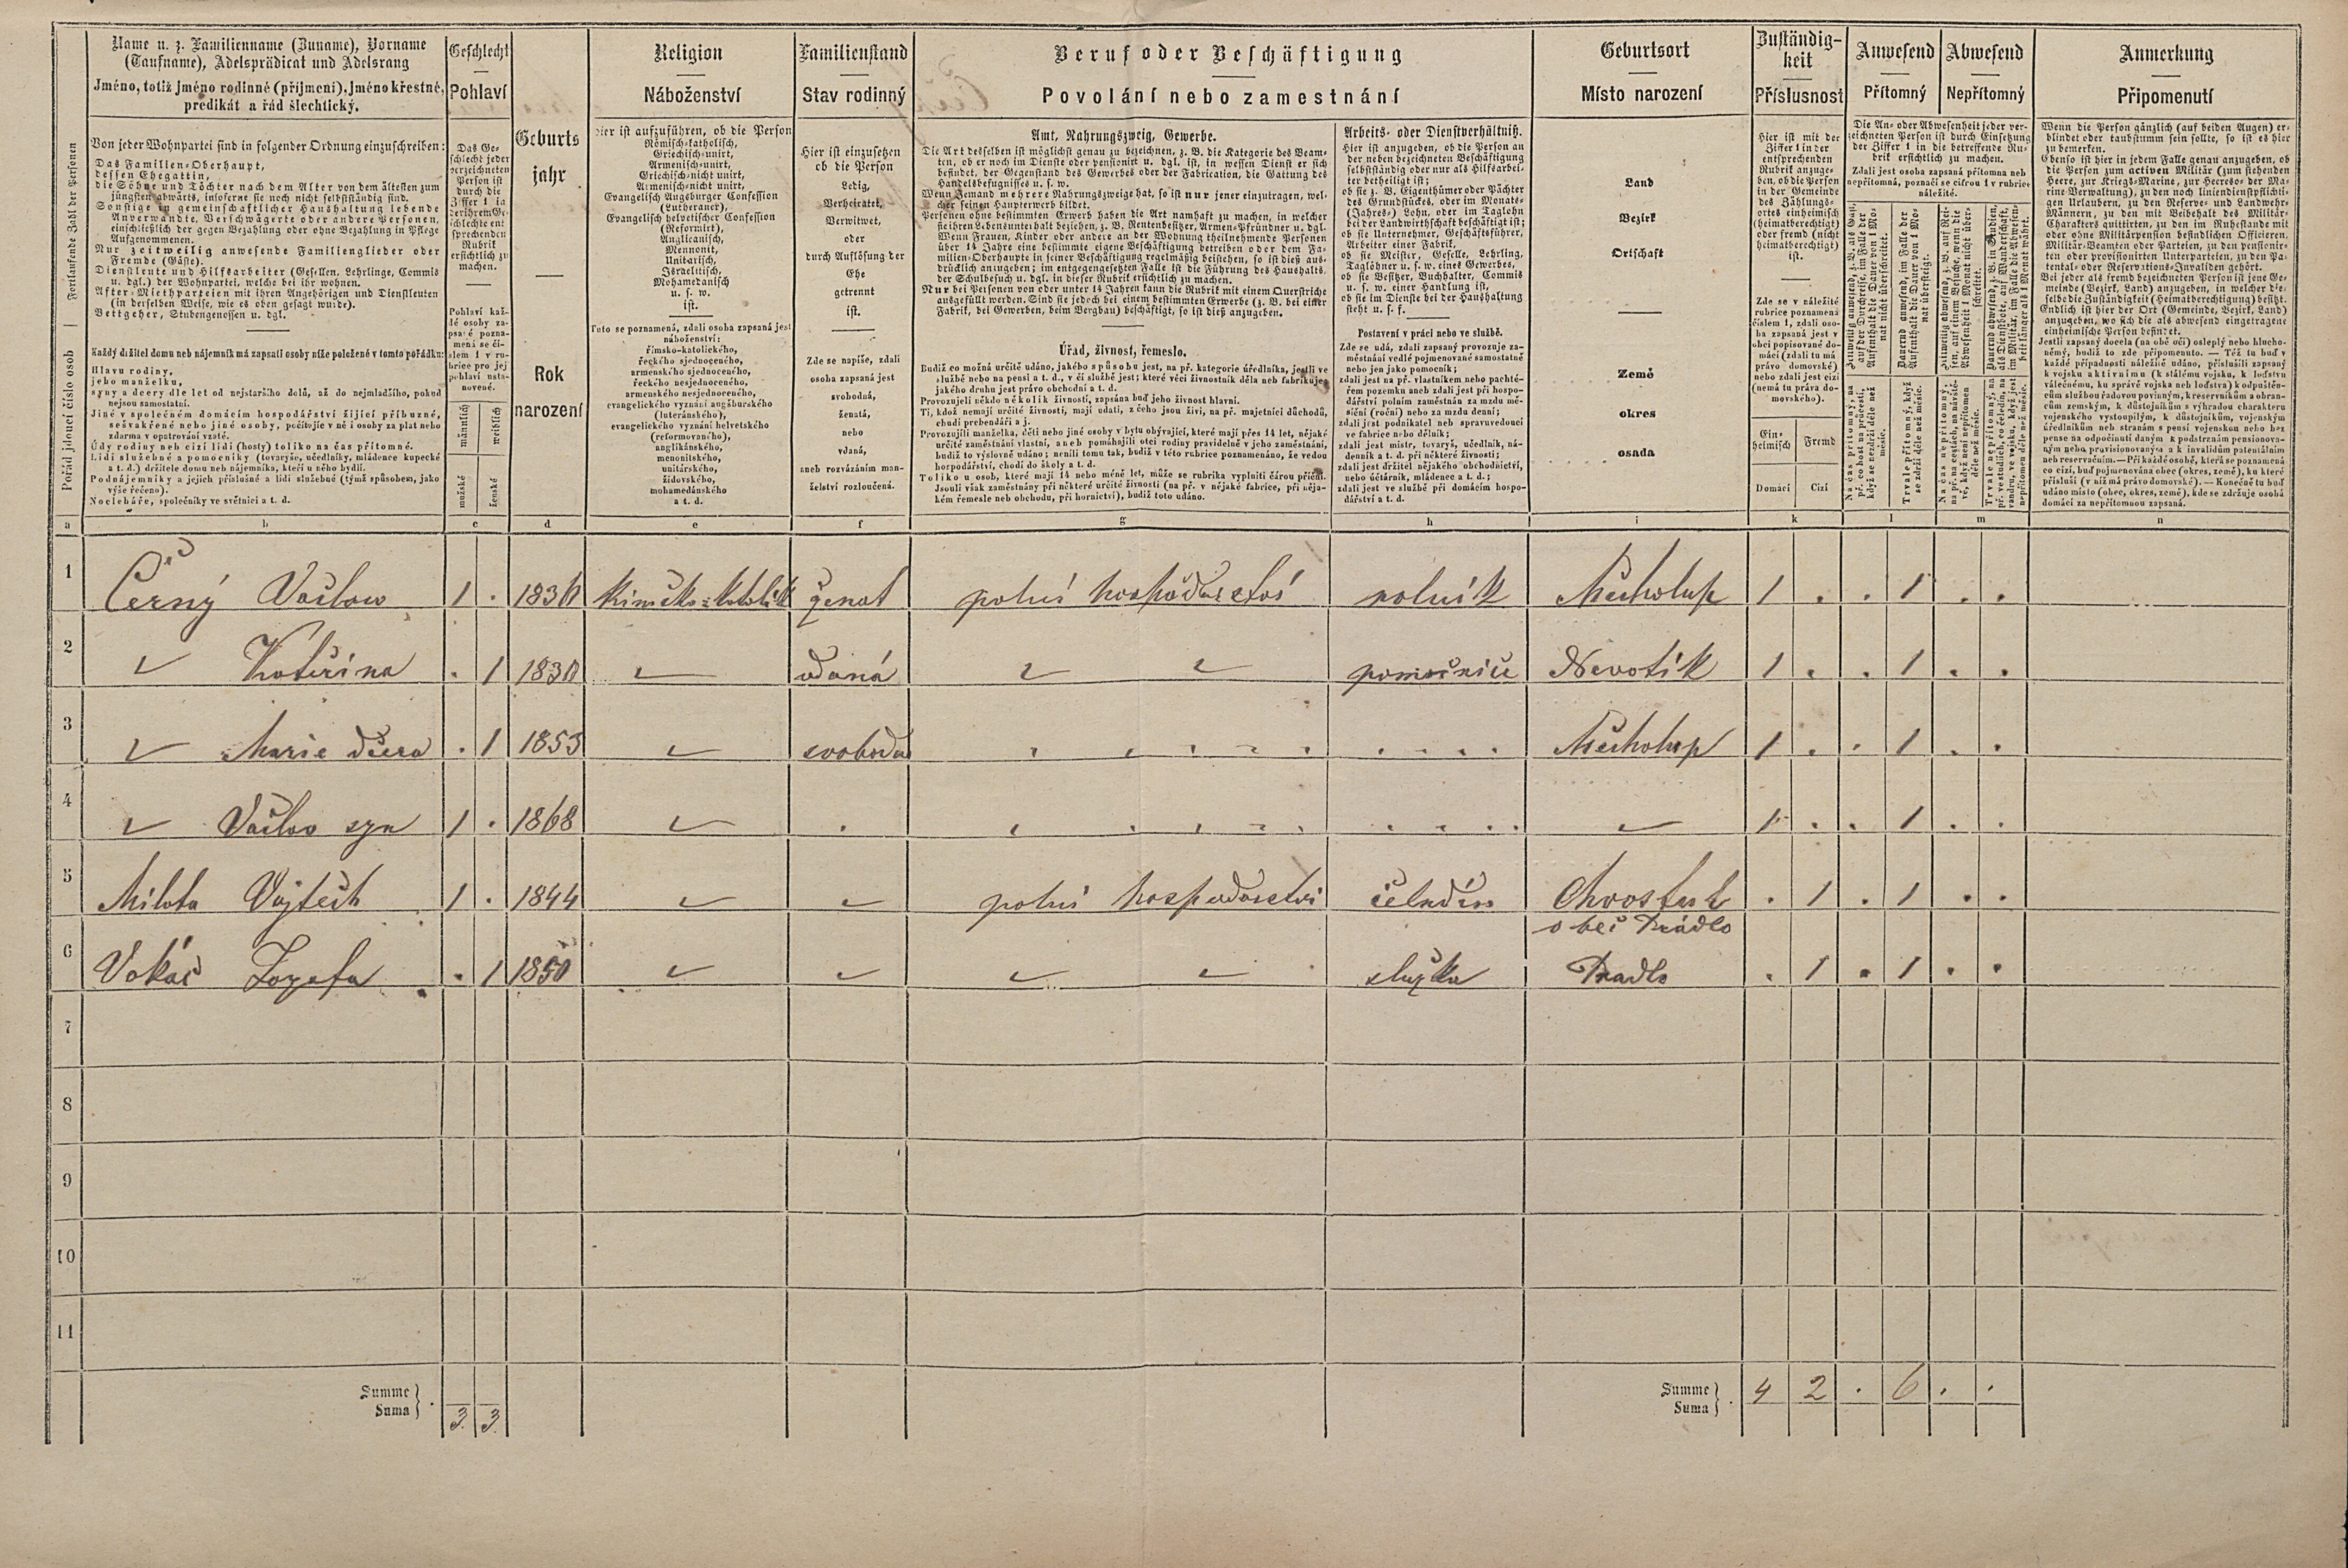 Name u. z. Familienname (Zuname), Vorname
(Taufname), Adelsprädicat und Adelsrang
Jméno, totiž jméno rodinné (příjmení), jméno křestné,
predikát a řád šlechtický.
Fortlaufende Zahl der Personen
Pořád jdoucí číslo osob
Von jeder Wohnpartei sind in folgender Ordnung einzuschreiben:
Das Familien-Oberhaupt,
dessen Ehegattin,
die Söhne und Töchter nach dem Alter von dem ältesten zum
jüngsten abwärts, insoferne sie noch nicht selbstständig sind.
Sonstige in gemeinschaftlicher Haushaltung lebende
Anverwandte, Verschwägerte oder andere Personen,
einschließlich der gegen Bezahlung oder ohne Bezahlung in Pflege
Aufgenommenen.
Nur zeitweilig anwesende Familienglieder oder
Fremde (Gäste).
Dienstleute und Hilfsarbeiter (Gesellen, Lehrlinge, Commis
u. dgl.) der Wohnpartei, welche bei ihr wohnen.
After-Miethparteien mit ihren Angehörigen und Dienstleuten
(in derselben Weise, wie es oben gesagt wurde).
Bettgeher, Stubengenossen u. dgl.
Každý držitel domu neb nájemník má zapsati osoby níže položené v tomto pořádku:
Hlavu rodiny,
jeho manželku,
syny a dcery dle let od nejstaršího dolů, až do nejmladšího, pokud
nejsou samostatní.
Jiné v společném domácím hospodářství žijící příbuzné,
sešvakřené nebo jiné osoby, počítajíc v ně i osoby za plat nebo
zdarma v opatrování vzaté.
Údy rodiny neb cizí lidi (hosty) toliko na čas přítomné.
Lidi služebné a pomocníky (tovaryše, učedlníky, mládence kupecké
a t. d.) držitele domu neb nájemníka, kteří u něho bydlí.
Podnájemníky a jejich příslušné a lidi služebné (týmž spůsobem, jako
výše řečeno).
Noclehaře, společníky ve světnici a t. d.
Geschlecht
Pohlaví
Das Ge-
schlecht jeder
verzeichneten
Person ist
durch die
Ziffer 1 in
der ihrem Ge-
schlechte ent
sprechenden
Rubrik
ersichtlich zu
machen.
Pohlaví kaž-
dé osoby za-
psané pozna-
mená se čí-
slem 1 v ru-
brice pro jej
pohlaví usta-
novené.
männlich
weiblich
mužské
ženské
Geburts
jahr
Rok
narození
Religion
Náboženství
Hier ist aufzuführen, ob die Person
Römisch-katholisch,
Griechisch-unirt,
Armenisch-unirt,
Griechisch-nicht unirt,
Armenisch-nicht unirt,
Evangelisch Augsburger Confession
(Lutheraner),
Evangelisch helvetischer Confession
(Reformirt),
Anglicanisch,
Mennonit,
Unitarisch,
Israelitisch,
Mohamedanisch
u. s. w.
ist.
Tuto se poznamená, zdali osoba zapsaná jest
náboženství:
římsko-katolického,
řeckého sjednoceného,
armenského sjednoceného,
řeckého nesjednoceného,
armenského nesjednoceného,
evangelického vyznání augšburského
(luteránského),
evangelického vyznání helvetského
(reformovaného),
anglikánského,
menonitského,
unitárského,
židovského,
mohamedánského
a t. d.
Familienstand
Stav rodinný
Hier ist einzusetzen
ob die Person
Ledig,
Verheiratet,
Verwitwet,
oder
durch Auflösung der
Ehe
getrennt
ist.
Zde se napíše, zdali
osoba zapsaná jest
svobodná,
ženatá,
nebo
vdaná,
aneb rozvázáním man-
želství rozloučená.
Beruf oder Beschäftigung
Povolání nebo zamestnání
Amt, Nahrungszweig, Gewerbe.
Die Art desselben ist möglichst genau zu bezeichnen, z. B. die Kategorie des Beam-
ten, ob er noch im Dienste oder pensionirt u. dgl. ist, in wessen Dienst er sich
befindet, der Gegenstand des Gewerbes oder der Fabrication, die Gattung des
Handelsbefugnisses u. s. w.
Wenn Jemand mehrere Nahrungszweige hat, so ist nur jener einzutragen, wel-
cher seinen Haupterwerb bildet.
Personen ohne bestimmten Erwerb haben die Art namhaft zu machen, in welcher
sie ihren Lebensunterhalt beziehen, z. B. Rentenbesitzer, Armen-Pfründner u. dgl.
Wenn Frauen, Kinder oder andere an der Wohnung theilnehmende Personen
über 14 Jahre eine bestimmte eigene Beschäftigung betreiben oder dem Fa-
milien-Oberhaupte in seiner Beschäftigung regelmäßig beistehen, so ist dieß aus-
drücklich anzugeben; im entgegengesetzten Falle ist die Führung des Haushalts,
der Schulbesuch u. dgl. in dieser Rubrik ersichtlich zu machen.
Nur bei Personen von oder unter 14 Jahren kann die Rubrik mit einem Querstriche
ausgefüllt werden. Sind sie jedoch bei einem bestimmten Erwerbe (z. B. bei einer
Fabrik, bei Gewerben, beim Bergbau) beschäftigt, so ist dieß anzugeben.
Úřad, živnost, řemeslo.
Budiž co možná určitě udáno, jakého spůsobu jest, na př. kategorie úředlníka, jestli ve
službě nebo na pensi a t. d., v čí službě jest; které věci živnostník dělá neb fabrikuje,
jakého druhu jest právo obchodní a t. d.
Provozujeli někdo několik živností, zapsána buď jeho živnost hlavní.
Ti, kdož nemají určité živnosti, mají udati, z čeho jsou živi, na př. majetníci důchodů,
chudí prebendáři a j.
Provozujíli manželka, děti nebo jiné osoby v bytu obývající, které mají přes 14 let, nějaké
určité zaměstnání vlastní, aneb pomáhajíli otci rodiny pravidelně v jeho zaměstnání,
budiž to výslovně udáno; neníli tomu tak, budiž v této rubrice poznamenáno, že vedou
hospodářství, chodí do školy a t. d.
Toliko u osob, které mají 14 nebo méně let, může se rubrika vyplniti čárou příční.
Jsouli však zaměstnány při některé určité živnosti (na př. v nějaké fabrice, při něja-
kém řemesle neb obchodu, při hornictví), budiž toto udáno.
Arbeits- oder Dienstverhältniß.
Hier ist anzugeben, ob die Person an
der neben bezeichneten Beschäftigung
selbstständig oder nur als Hilfsarbei-
ter betheiligt ist;
ob sie z. B. Eigenthümer oder Pächter
des Grundstückes, oder im Monats-
(Jahres-) Lohn, oder im Taglohn
bei der Landwirthschaft beschäftigt ist;
ob sie Unternehmer, Geschäftsführer,
Arbeiter einer Fabrik,
ob sie Meister, Geselle, Lehrling,
Taglöhner u. s. w. eines Gewerbes,
ob sie Besitzer, Buchhalter, Commis
u. s. w. einer Handlung ist,
ob sie im Dienste bei der Haushaltung
steht u. s. f.
Postavení v práci nebo ve službě.
Zde se udá, zdali zapsaný provozuje za-
městnání vedlé pojmenované samostatně
nebo jen jako pomocník;
zdali jest na př. vlastníkem nebo pachté-
řem pozemku aneb zdali jest při hospo-
dářství polním zaměstnán za mzdu mě-
síční (roční) nebo za mzdu denní;
zdali jest podnikatel neb spravuvedoucí
ve fabrice nebo dělník;
zdali jest mistr, tovaryš, učedlník, ná-
denník a t. d. při některé živnosti;
zdali jest držitel nějakého obchodnictví,
nebo účtárník, mládenec a t. d.;
zdali jest ve službě při domácím hospo-
dářství a t. d.
Geburtsort
Místo narození
Land
Bezirk
Ortschaft
Země
okres
osada
Zuständig-
keit
Příslusnost
Hier ist mit der
Ziffer 1 in der
entsprechenden
Rubrik anzuge-
ben, ob die Person
in der Gemeinde
des Zählungs-
ortes einheimisch
(heimatberechtigt)
oder fremd (nicht
heimatberechtigt)
ist.
Zde se v náležité
rubrice poznamená
číslem 1, zdali oso-
ba zapsaná jest v
obci popisované do-
mácí (zdali tu má
právo domovské)
nebo zdali jest cizí
(nemá tu práva do-
movského).
Ein-
heimisch
Fremd
Domácí
Cizí
Anwesend
Přítomný
Abwesend
Nepřítomný
Die An- oder Abwesenheit jeder ver-
zeichneten Person ist durch Einsetzung
der Ziffer 1 in die betreffende Ru-
brik ersichtlich zu machen.
Zdali jest osoba zapsaná přítomna neb
nepřítomná, poznačí se cifrou 1 v rubrice
náležité.
Anmerkung
Připomenutí
Wenn die Person gänzlich (auf beiden Augen) er-
blindet oder taubstumm sein sollte, so ist es hier
zu bemerken.
Ebenso ist hier in jedem Falle genau anzugeben, ob
die Person zum activen Militär (zum stehenden
Heere, zur Kriegs-Marine, zur Heeres- oder Ma-
rine Verwaltung), zu den noch liniendienstpflichti-
gen Urlaubern, zu den Reserve- und Landwehr-
Männern, zu den mit Beibehalt des Militär-
Charakters quittirten, zu den im Ruhestande mit
oder ohne Militärpension befindlichen Officieren,
Militär-Beamten oder Parteien, zu den pensionir-
ten oder provisionirten Unterparteien, zu den Pa-
tental- oder Reservations-Invaliden gehört.
Bei jeder als fremd bezeichneten Person ist jene Ge-
meinde (Bezirk, Land) anzugeben, in welcher die-
selbe die Zuständigkeit (Heimatberechtigung) besitzt.
Endlich ist hier der Ort (Gemeinde, Bezirk, Land)
anzugeben, wo sich die als abwesend eingetragene
einheimische Person befindet.
Jestli zapsaný docela (na obě oči) osleplý nebo hlucho-
němý, budiž to zde připomenuto. — Též tu buď v
každé případnosti náležitě udáno, příslušíli zapsaný
k vojsku aktivnímu (k stálému vojsku, k loďstvu
válečnému, ku správě vojska neb loďstva) k odpuštěn-
cům službou řadovou povinným, k reservníkům a obran-
cům zemským, k důstojníkům s výhradou charakteru
vojenského vystouplým, k důstojníkům, vojenským
úředlníkům neb stranám s pensí vojenskou nebo bez
pense na odpočinutí daným, k podstrannám pensionova-
ným nebo provisionovaným a k invalidům patentálním
neb reservačním. — Při každé osobě, která se poznamená
co cizí, buď pojmenována obec (okres, země), ku které
přísluší (v níž má právo domovské). — Konečně tu buď
udáno místo (obec, okres, země), kde se zdržuje osoba
domácí za nepřítomnou zapsaná.
a b c d e f g h i k l m n
1 Černý Václaw 1 . 1836 Římsko-katolík ženat polní hospodářství rolník Měcholup 1 . . 1 . .
2 Kateřina . 1 1830 vdaná pomocnice Nevotík 1 . . 1 . .
3 Marie dcera . 1 1853 svobodna Měcholup 1 . . 1 . .
4 Václav syn 1 . 1868 1 . . 1 . .
5 Milota Vojtěch 1 . 1844 polní hospodarstvi čeledín . 1 . 1 . .
obec Prádlo
6 Vokáč Jozefa . 1 1850 služka Pradlo . 1 . 1 . .
7
8
9
10
11
Summe
Suma 3 3
Summe
Suma 4 2 . 6 . .